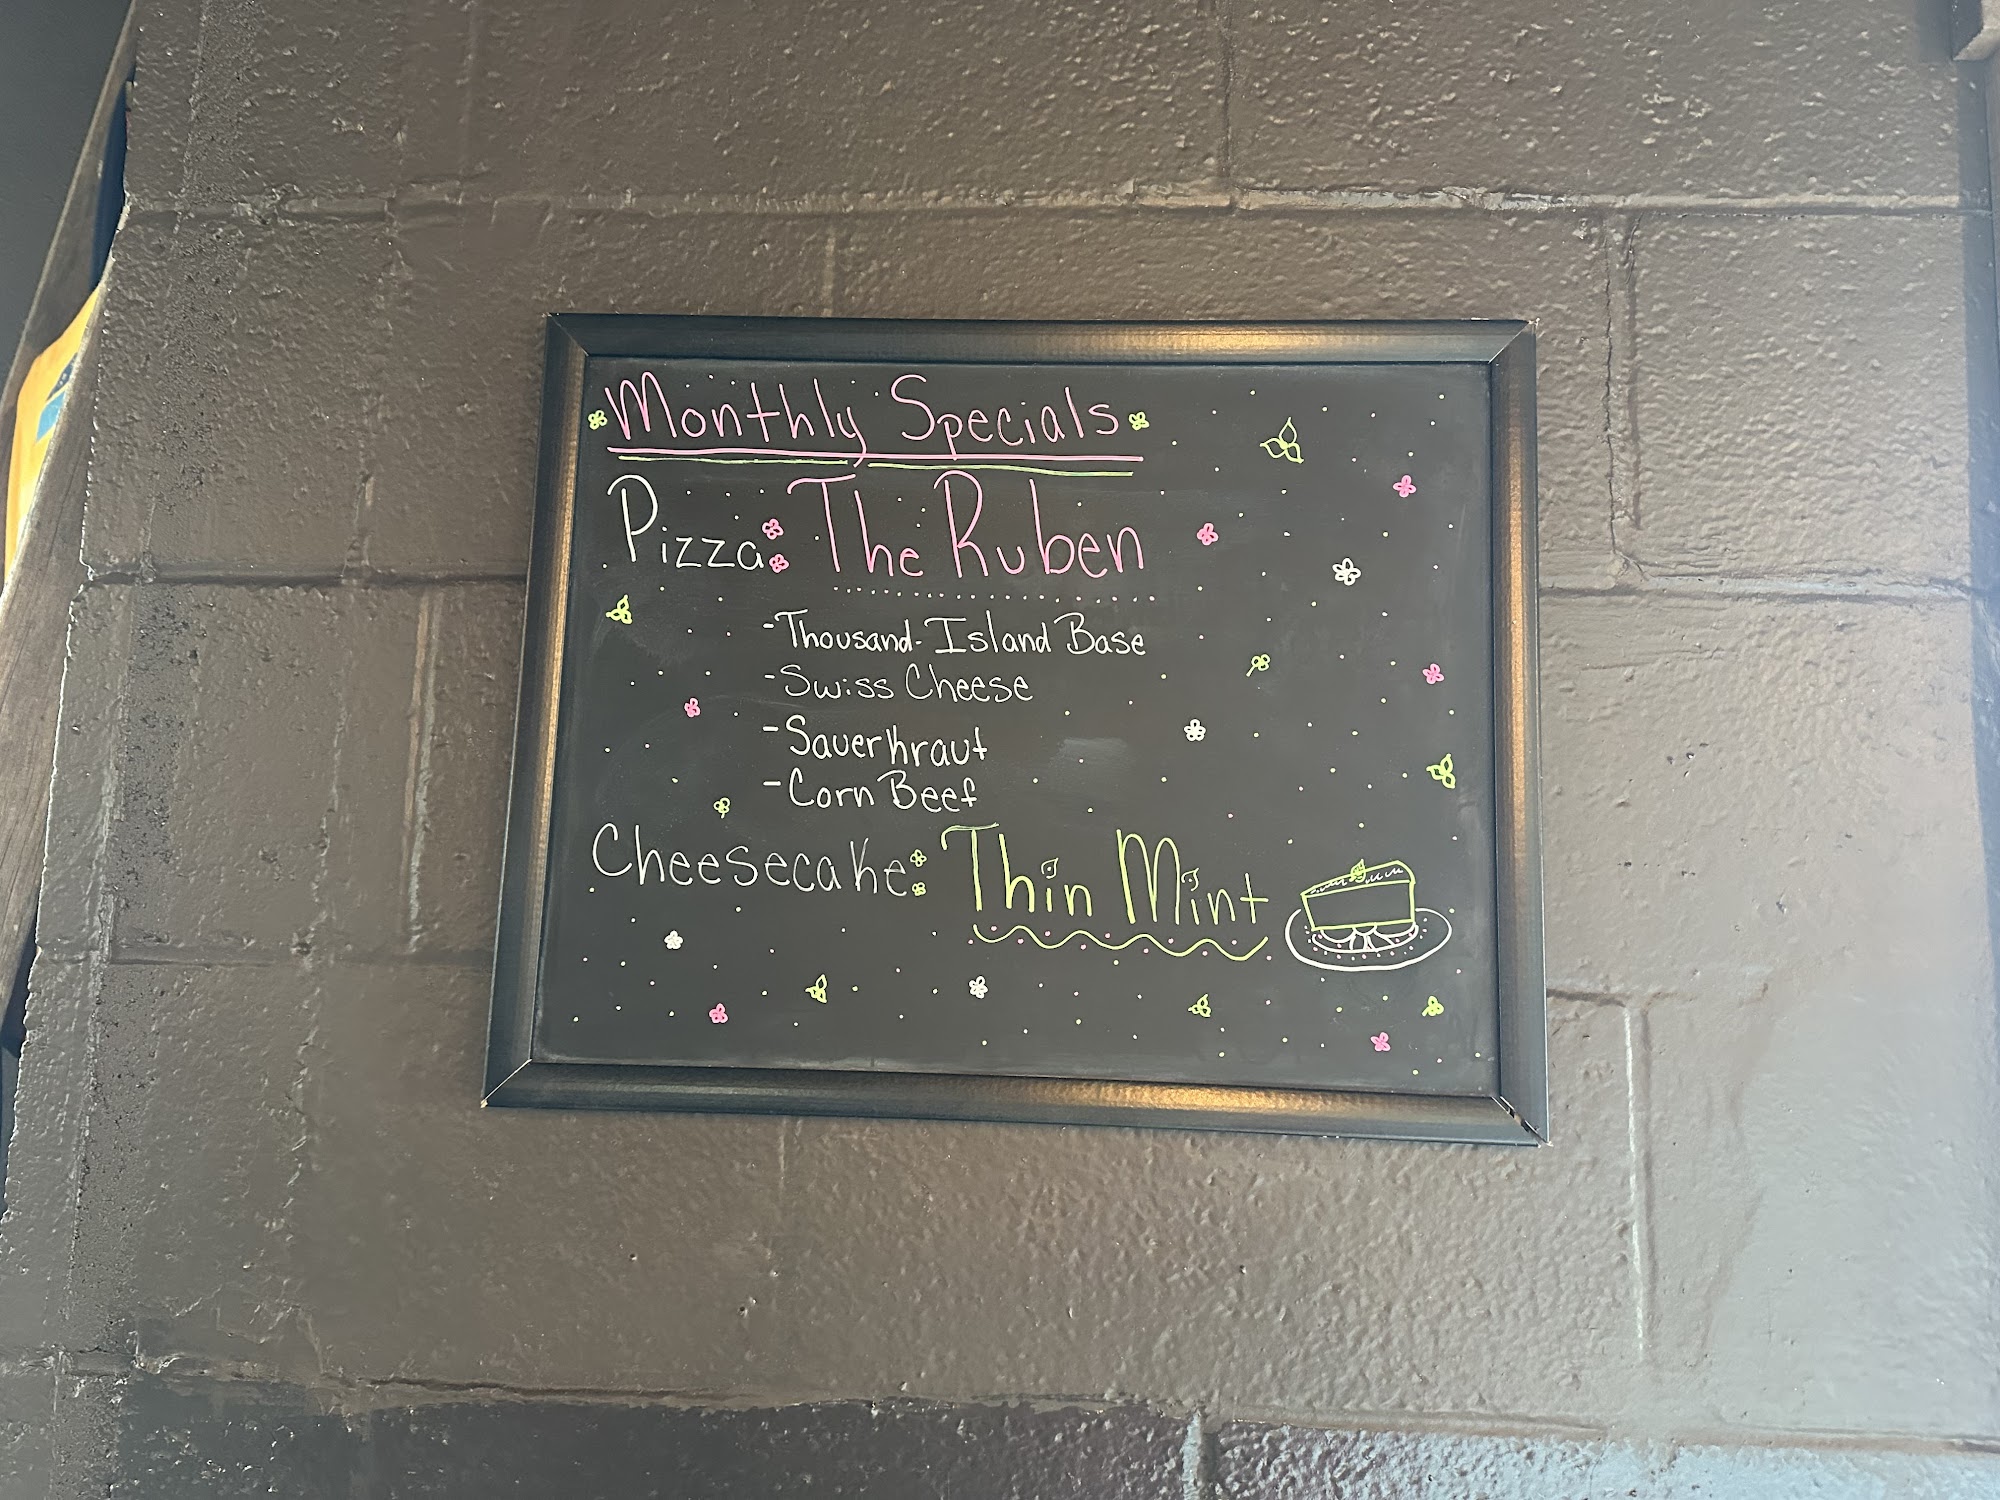 Monthly Specials
Pizza: The Ruben
-Thousand-Island Base
-Swiss Cheese
-Sauerkraut
-Corn Beef
Cheesecake: Thin Mint